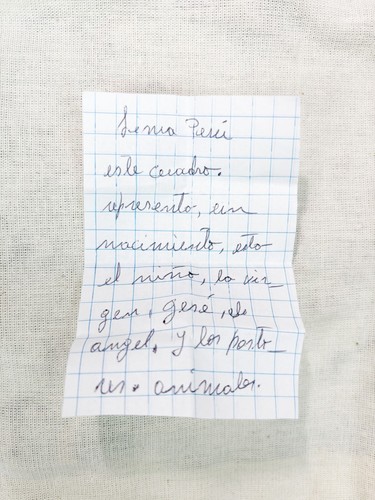 Lema Perú
este cuadro.
representa, un
nacimiento, esta
el niño, la vir-
gen, gosé, el
angel. y los pasto-
res. animales.